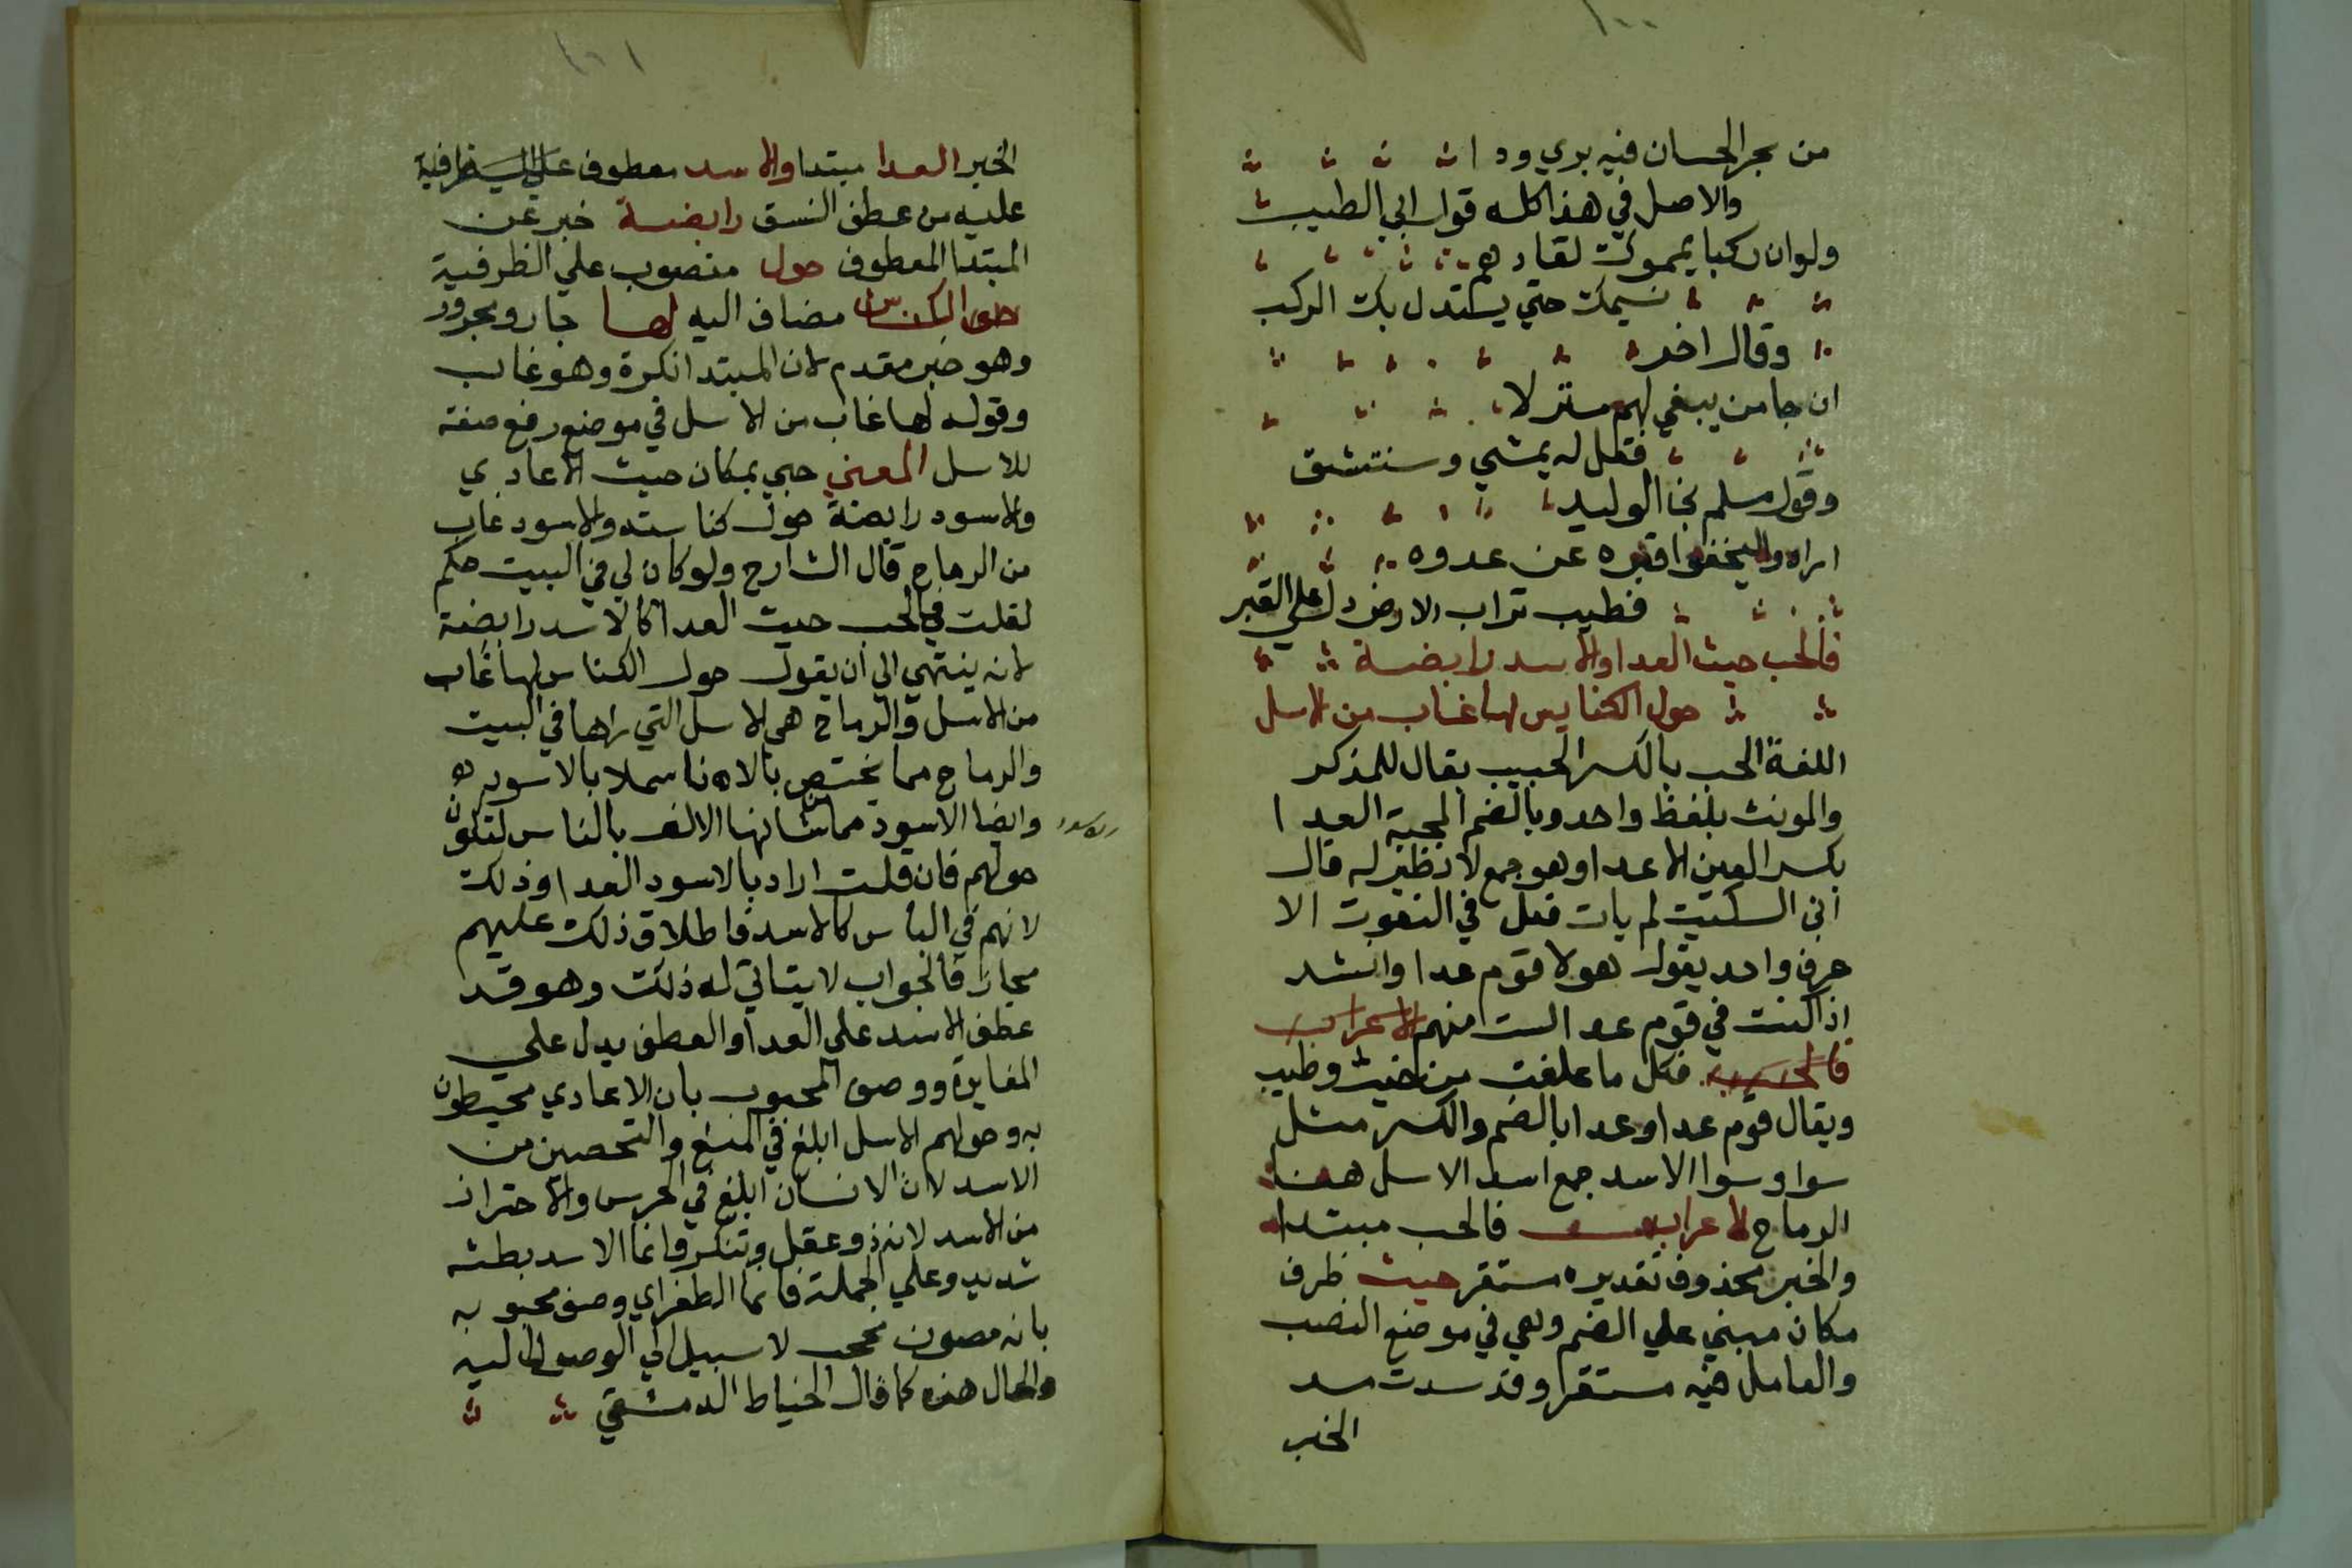 ١٠٠
من بحر الحسان فيه بري ودا
والاصل في هذا كله قول ابي الطيب
ولو ان ركبا يمموك لقادهم
نسيمك حتي يستدل بك الركب
وقال اخر
ان جا من يبغي لهم منزلا
فقل له يمشي وستنشق
وقول مسلم نجا الوليد
ارادوا ليخفوا قبره عن عدوه
فطيب تراب الارض دل علي القبر
فالحب حيث العدا والاسد رابضة
حول الكناس لها غاب من الاسل
اللغة الحب بالكسر الحبيب يقال للمذكر
والمونث بلفظ واحد وبالضم المحبة العدا
بكسر العين الاعدا وهو جمع لا نظير له قال
ابن السكيت لم يات فعل في النعوت الا
حرف واحد يقول هولا قوم عدا وانشد
اذا كنت في قوم عدا لست منهم الاعراب
فالحب فكل ما علفت من خبيث وطيب
ويقال قوم عدا وعدا بالضم والكسر مثل
سوا وسوا الاسد جمع اسد الاسل هنا
الرماح الاعراب فالحب مبتدا
والخبر محذوف تقديره مستقر حيث ظرف
مكان مبني علي الضم وهي في موضع النصب
والعامل فيه مستقر وقد سدت مسد
الخبر
١٠١
الخبر العدا مبتدا والاسد معطوف
عليه من عطف النسق رابضة خبر عن
المبتدا المعطوف حول منصوب علي الظرفية
الكناس مضاف اليه لها جار ومجرور
وهو خبر مقدم لان المبتدا نكرة وهو غاب
وقوله لها غاب من الاسل في موضع رفع صفة
للاسل المعني حبي بمكان حيث الاعادي
والاسود رابضة حول كناسته والاسود غاب
من الرماح قال الشارح ولو كان لي في البيت حكم
لقلت فالحب حيث العدا كالاسد رابضة
لانه ينتهي الي ان يقول حول الكناس لها غاب
من الاسل والرماح هي الاسل التي رأها في البيت
والرماح مما يختص بالاناس لا بالاسود
وايضا الاسود مما شانها الالف بالناس لتكون
حولهم فان قلت اراد بالاسود العدا وذلك
لانهم في الباس كالاسد فاطلاق ذلك عليهم
مجازا فالجواب لا يتاتي له ذلك وهو قد
عطف الاسد علي العدا والعطف يدل علي
المغايرة ووصف المحبوب بان الاعادي محيطون
به وحولهم الاسل ابلغ في المنع والتحصين من
الاسد لان الانسان ابلغ في الحرس والاحتراز
من الاسد لانه ذو عقل وتفكر فانما الاسد بطشه
شديد وعلي الجملة فانما الطغراي وصف محبوبه
بانه مصون محجب لا سبيل الي الوصول اليه
والحال هذه كما قال الخياط الدمشقي